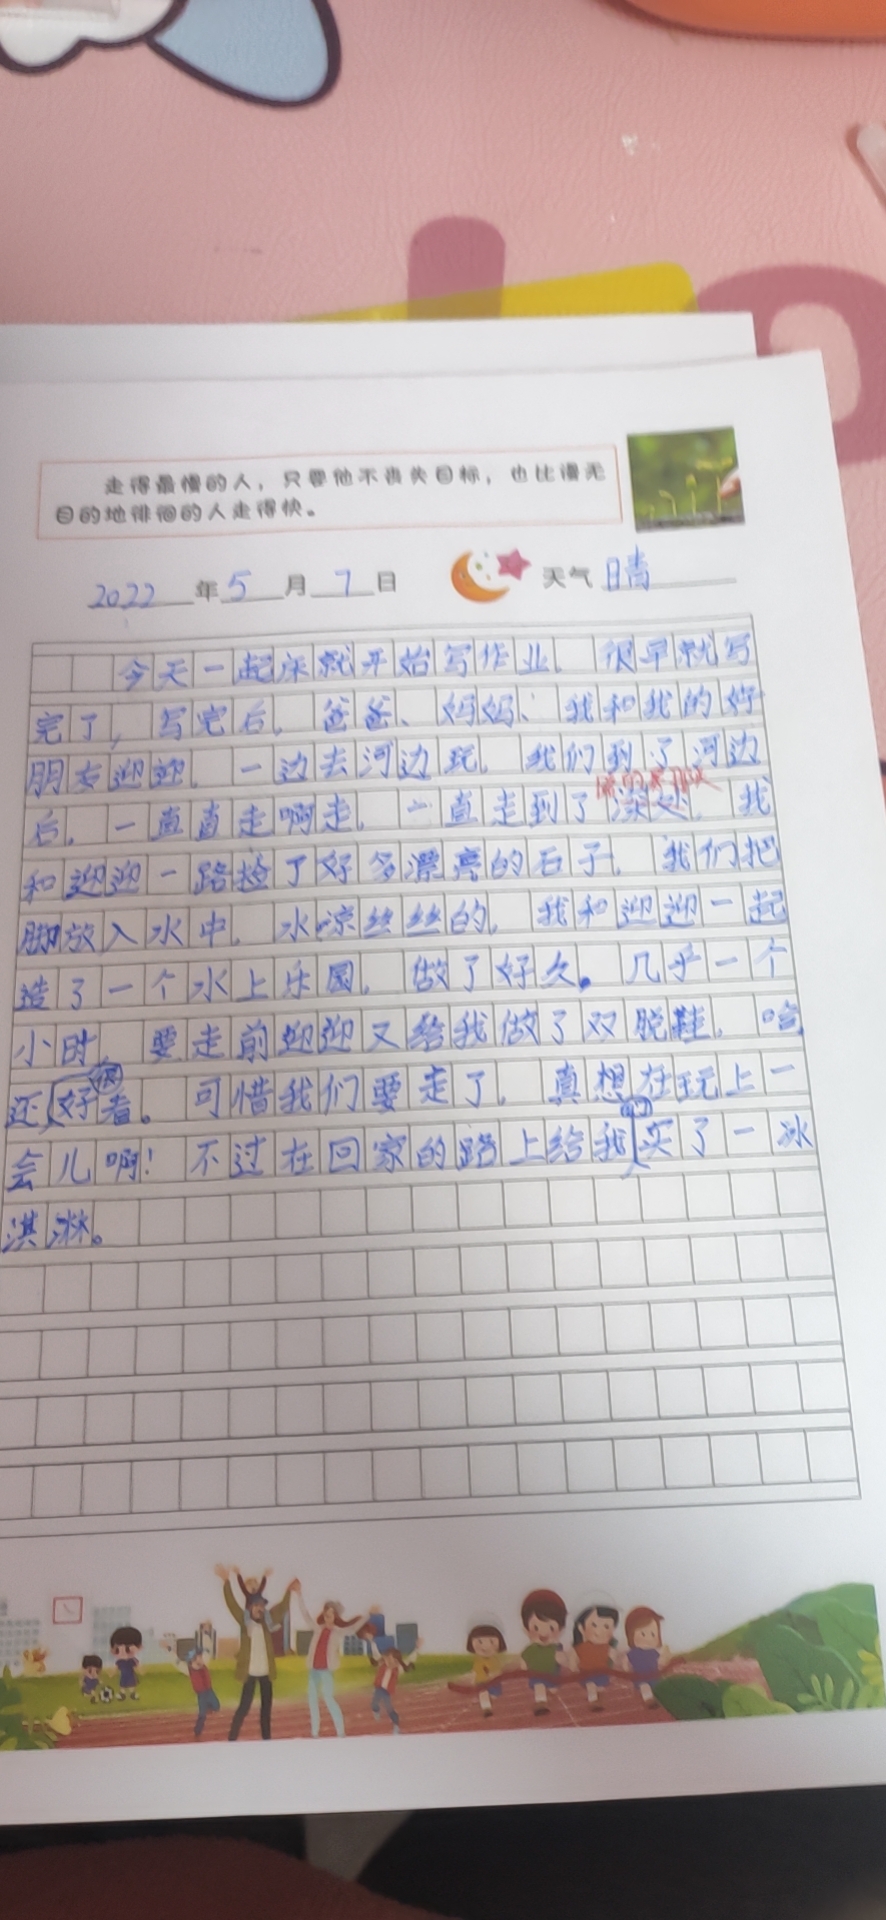 走得最慢的人，只要他不丧失目标，也比漫无
目的地徘徊的人走得快。
2022年5月7日 天气 晴
今天一起床就开始写作业，很早就写
完了，写完后，爸爸、妈妈、我和我的好
朋友迎迎，一边去河边玩，我们到了河边
后，一直直走啊走，一直走到了深处，我
和迎迎一路捡了好多漂亮的石子，我们把
脚放入水中，水凉丝丝的，我和迎迎一起
造了一个水上乐园，做了好久。几乎一个
小时，要走前迎迎又给我做了双脱鞋，哈
还好看。可惜我们要走了，真想在玩上一
会儿啊！不过在回家的路上给我买了一冰
淇淋。